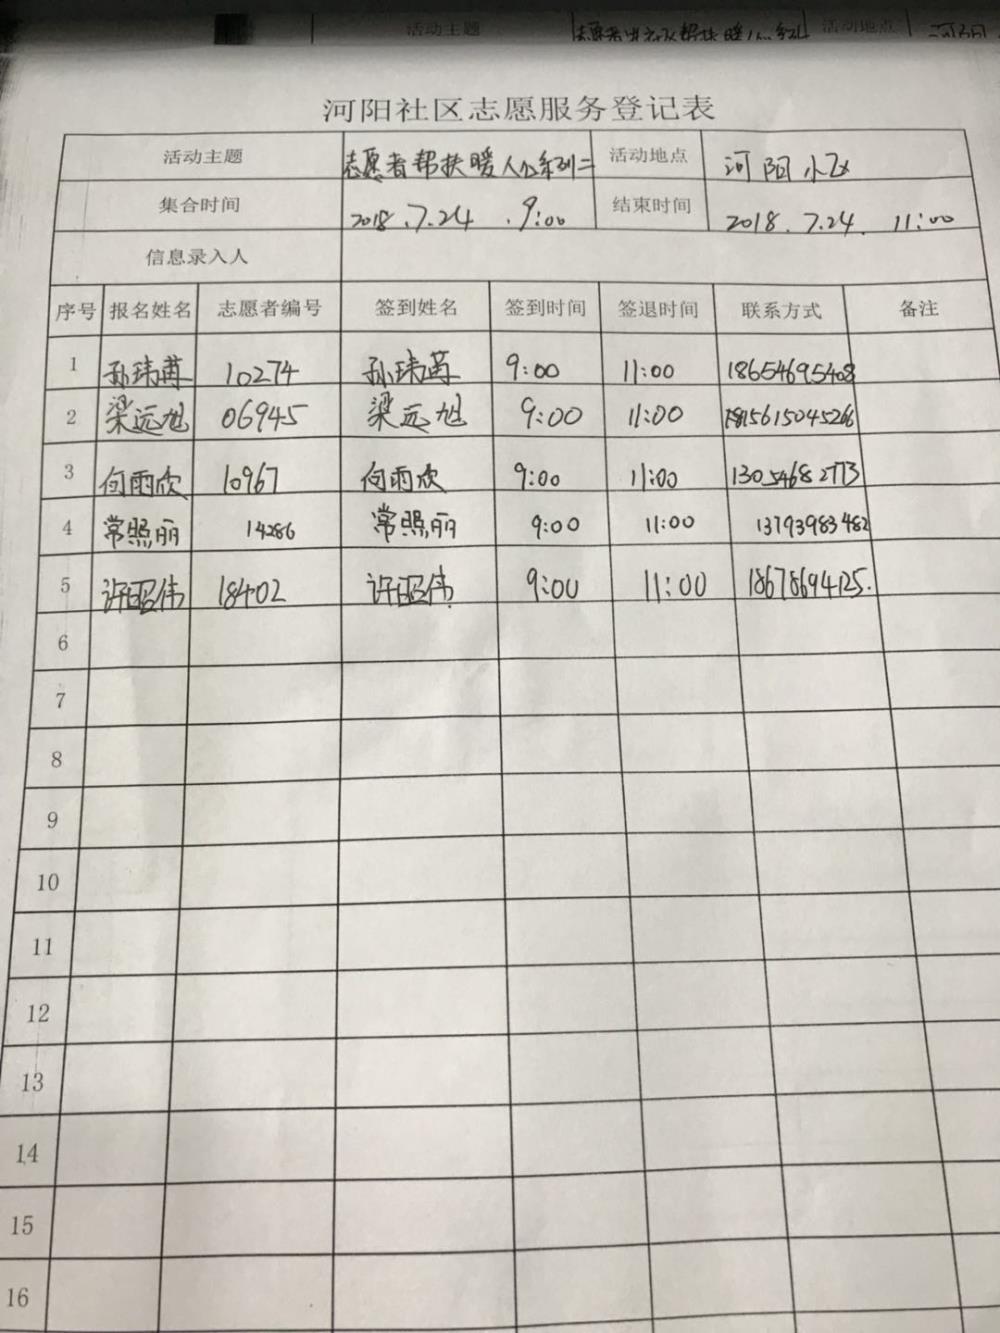 活动主题 志愿者 帮扶暖人心系列 活动地点 河阳
河阳社区志愿服务登记表
活动主题 志愿者帮扶暖人心系列二 活动地点 河阳小区
集合时间 2018.7.24 9:00 结束时间 2018.7.24 11:00
信息录入人
序号 报名姓名 志愿者编号 签到姓名 签到时间 签退时间 联系方式 备注
1 孙玮茜 10274 孙玮茜 9:00 11:00 18654695408
2 梁远旭 06945 梁远旭 9:00 11:00
3 向雨欣 10967 向雨欣 9:00 11:00 13054682773
4 常照丽 14286 常照丽 9:00 11:00 13793983482
5 许昭伟 18402 许昭伟 9:00 11:00 18678694125.
6
7
8
9
10
11
12
13
14
15
16